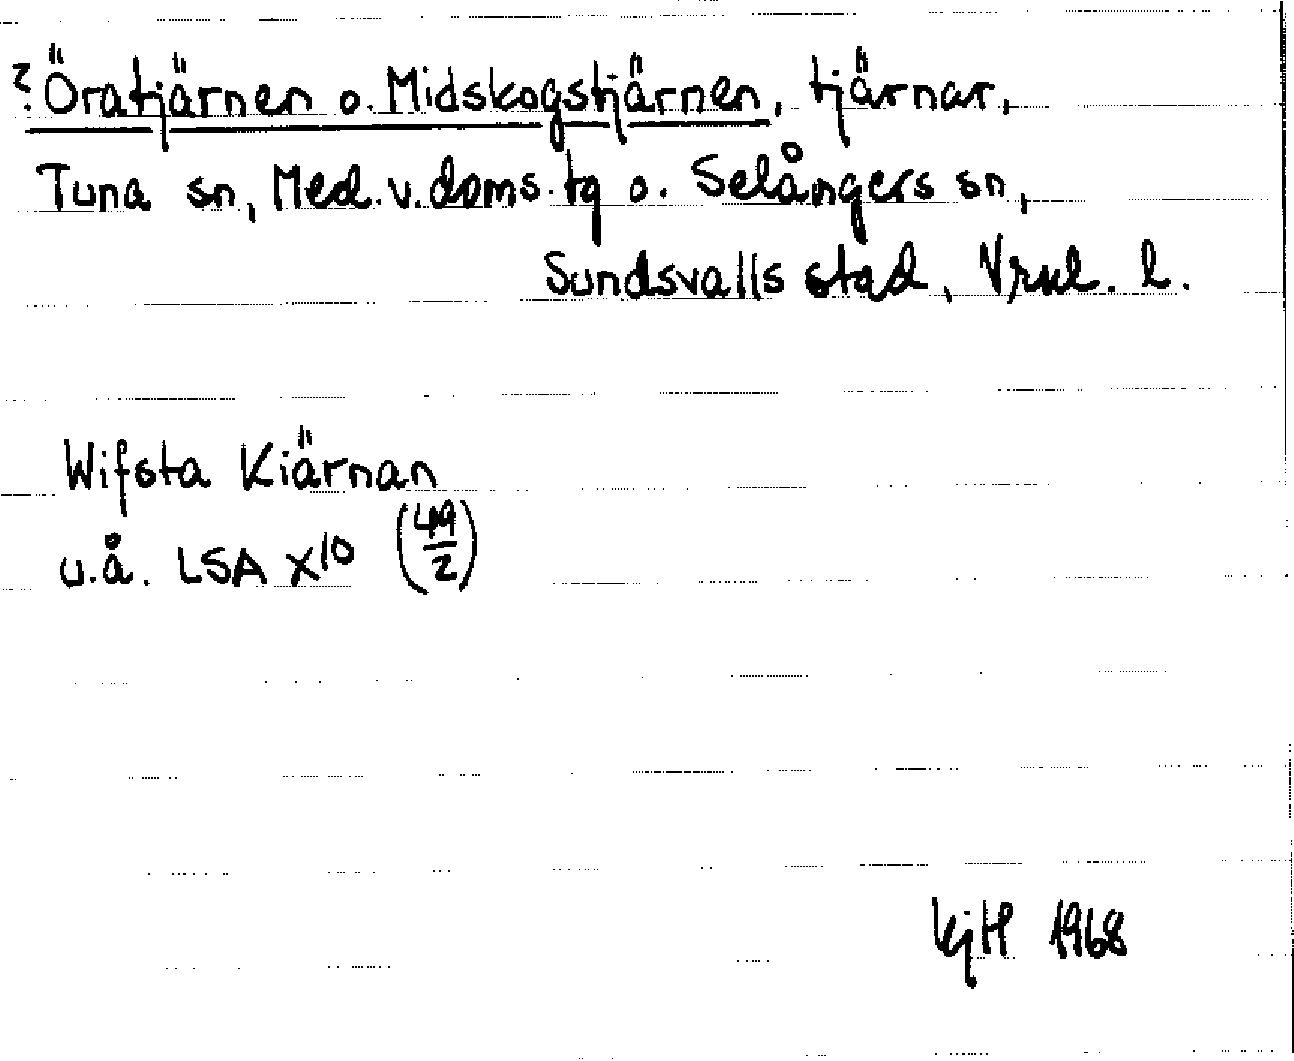 ? Öratjärnen o. Midskogstjärnen, tjärnar,
Tuna sn, Med. v. doms. tg o. Selångers sn,
Sundsvalls stad, Vrnl. l.
Wifsta Kiärnan
u.å. LSA X10 (49/2)
KjH 1968